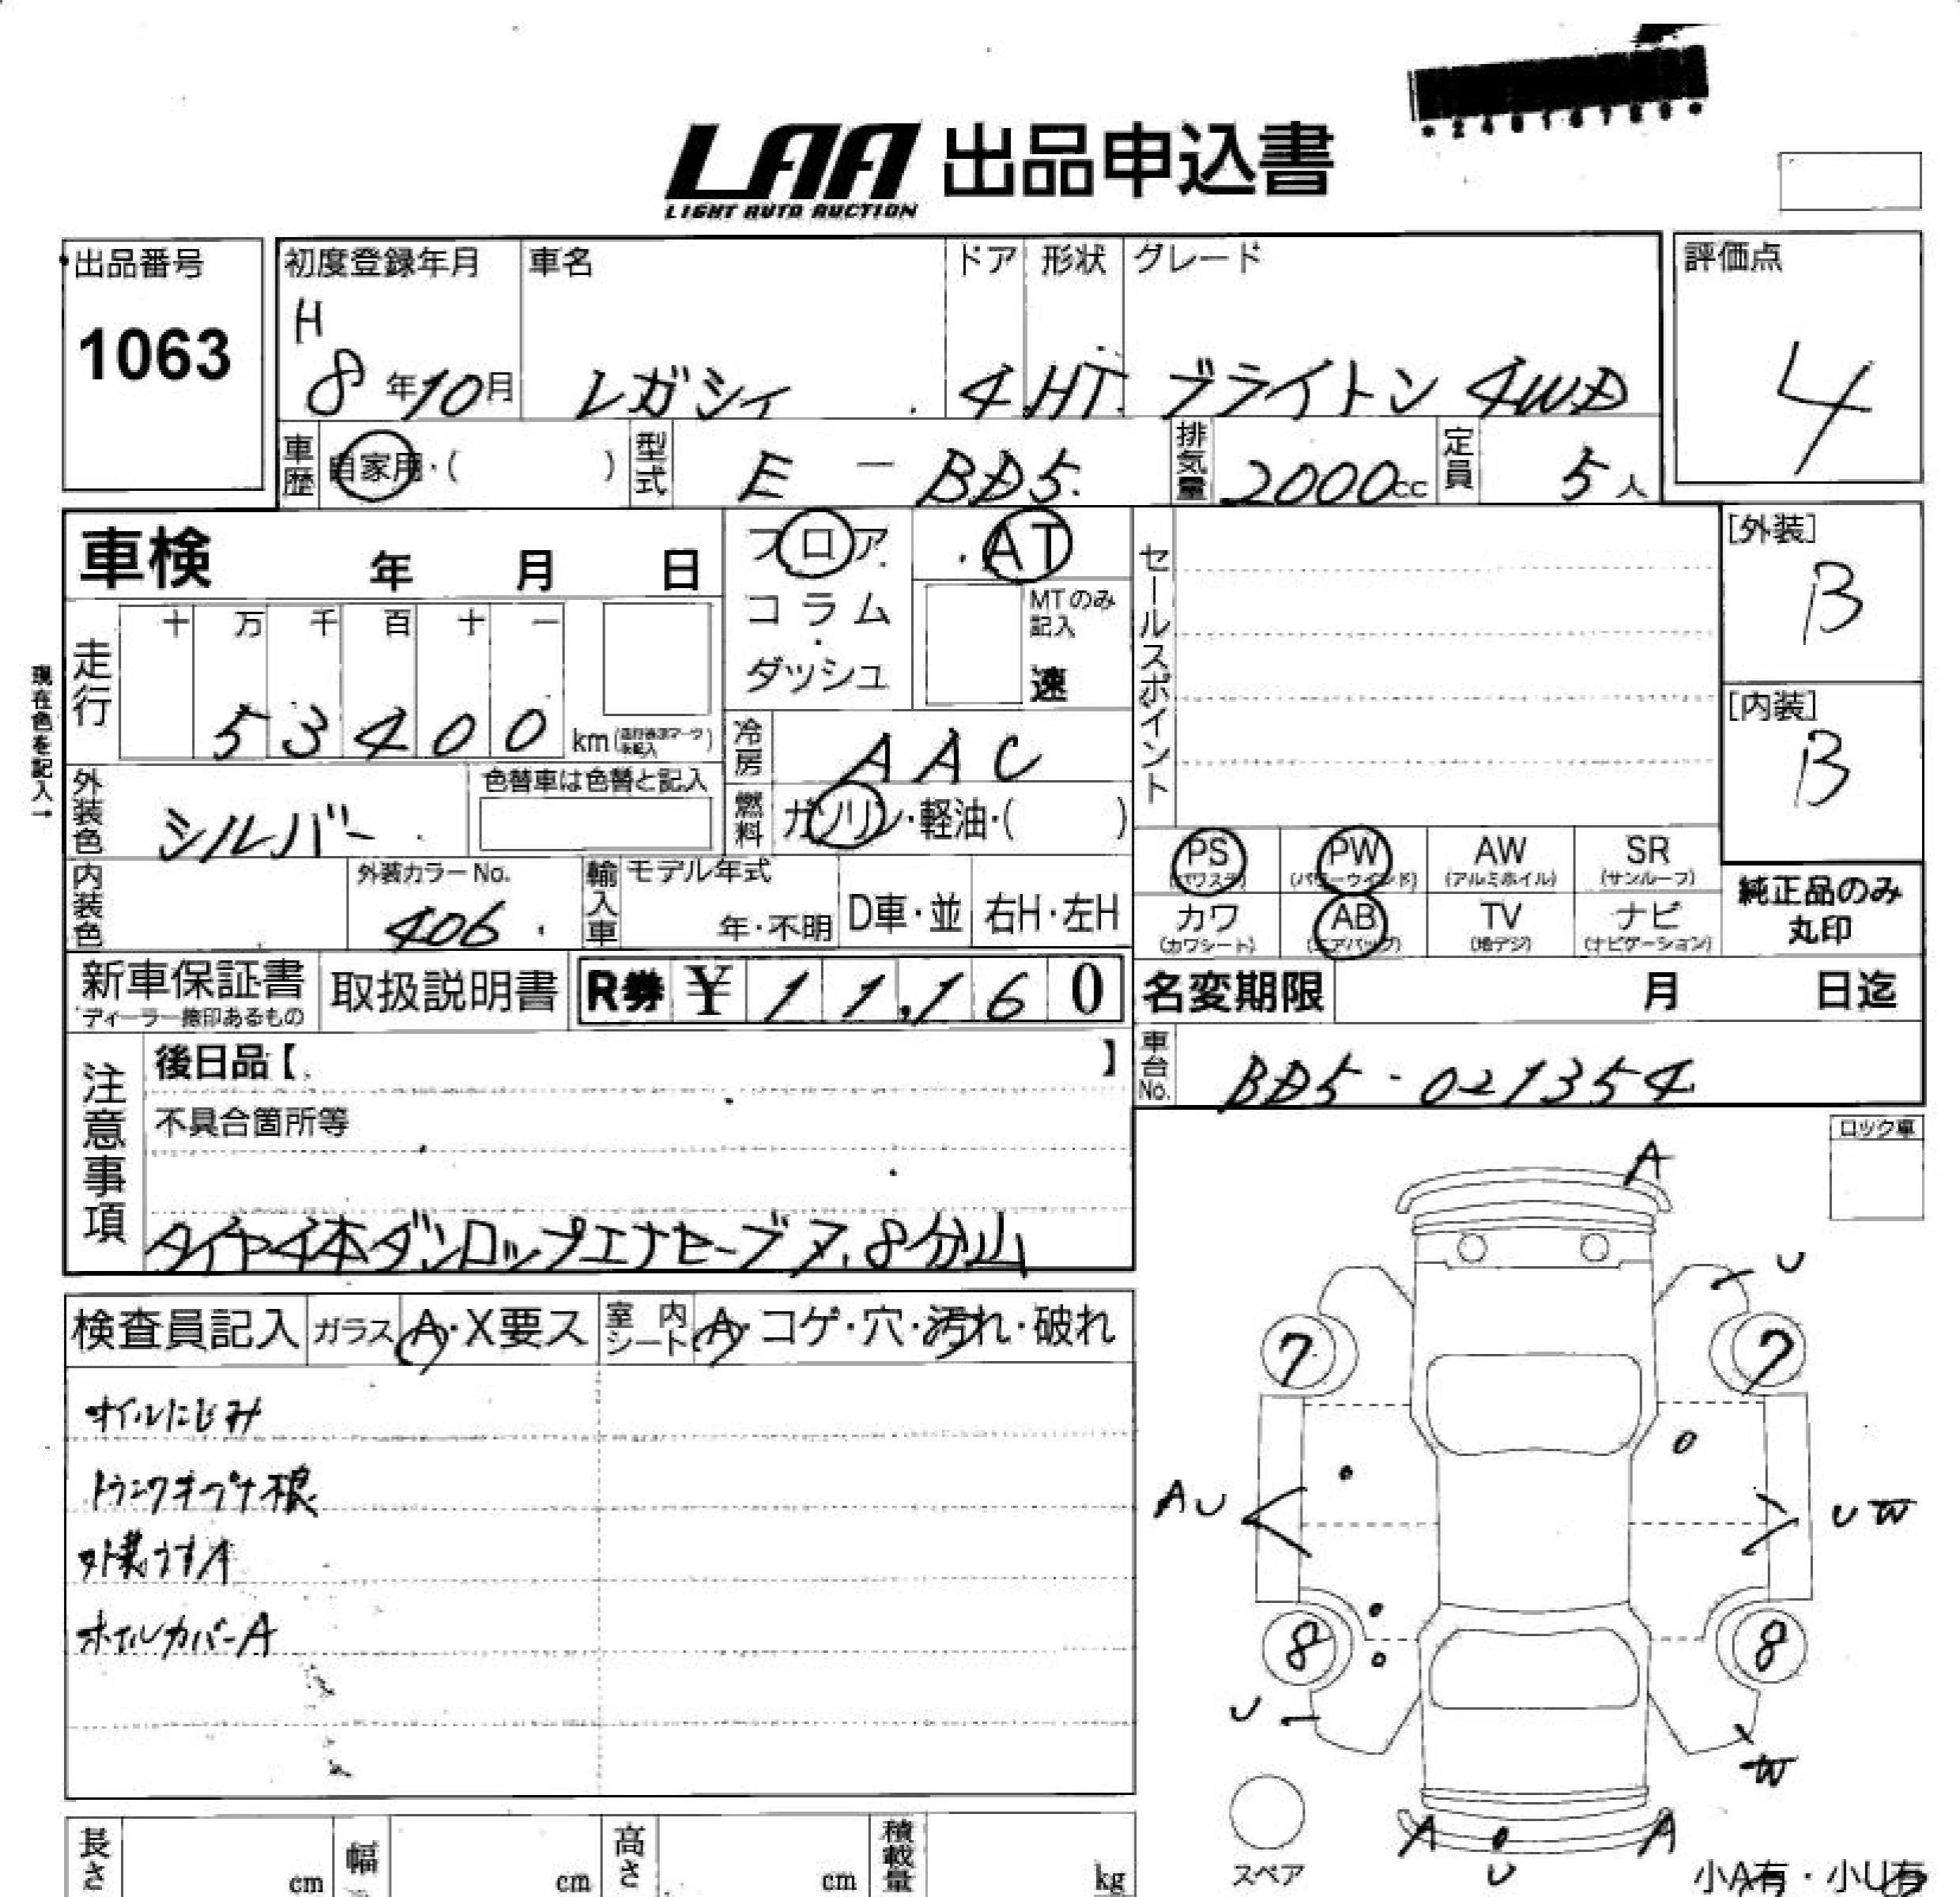 LAA 出品申込書
LIGHT AUTO AUCTION
出品番号
1063
初度登録年月
H
8年10月
車名
レガシィ
ドア
4
形状
HT
グレード
ブライトン 4WD
評価点
4
車歴
自家用・( )
型式
E - BD5
排気量
2000cc
定員
5人
車検 年 月 日
フロア
コラム
・
ダッシュ
AT
MTのみ
記入
速
セールスポイント
[外装]
B
[内装]
B
現在色を記入→
走行
十 万 千 百 十 一
5 3 4 0 0
km
冷房
AAC
外装色
シルバー
色替車は色替と記入
燃料
ガソリン・軽油・( )
内装色
外装カラーNo.
406
輸入車
モデル年式
年・不明
D車・並
右H・左H
PS
(パワステ)
PW
(パワーウインド)
AW
(アルミホイル)
SR
(サンルーフ)
カワ
(カワシート)
AB
(エアバッグ)
TV
(地デジ)
ナビ
(ナビゲーション)
純正品のみ
丸印
新車保証書
ディーラー捺印あるもの
取扱説明書
R券 ¥ 1 1,1 6 0
名変期限 月 日迄
注意事項
後日品【 】
車台No.
BD5-021354
不具合箇所等
タイヤ4本ダンロップエナセーブ7.8分山
ロック車
検査員記入
ガラス
A・X要ス
室内シート
A・コゲ・穴・汚れ・破れ
オイルにじみ
外装うすA
ホイルカバーA
A
U
7 7
AU
UW
8 8
U
W
A U A
スペア
小A有・小U有
長さ cm
幅 cm
高さ cm
積載量 kg